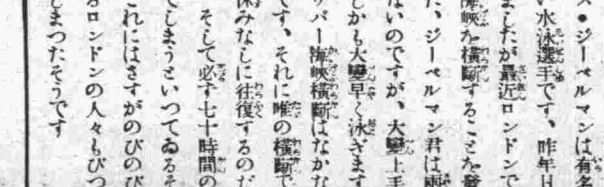 ス・ジーベルマンは有名
い水泳選手です、昨年
ましたが最近ロンドンで
海峡を横断することを
た、ジーベルマン君は両
ないのですが、大變上手
しかも大變早く泳ぎます
ヴバー海峡横断はなかな
です、それに唯の横断で
休みなしに往復するのだ
そして必ず七十時間の
てしまうといつてゐるそ
これにはさすがのびのび
るロンドンの人々もびつ
しまつたそうです